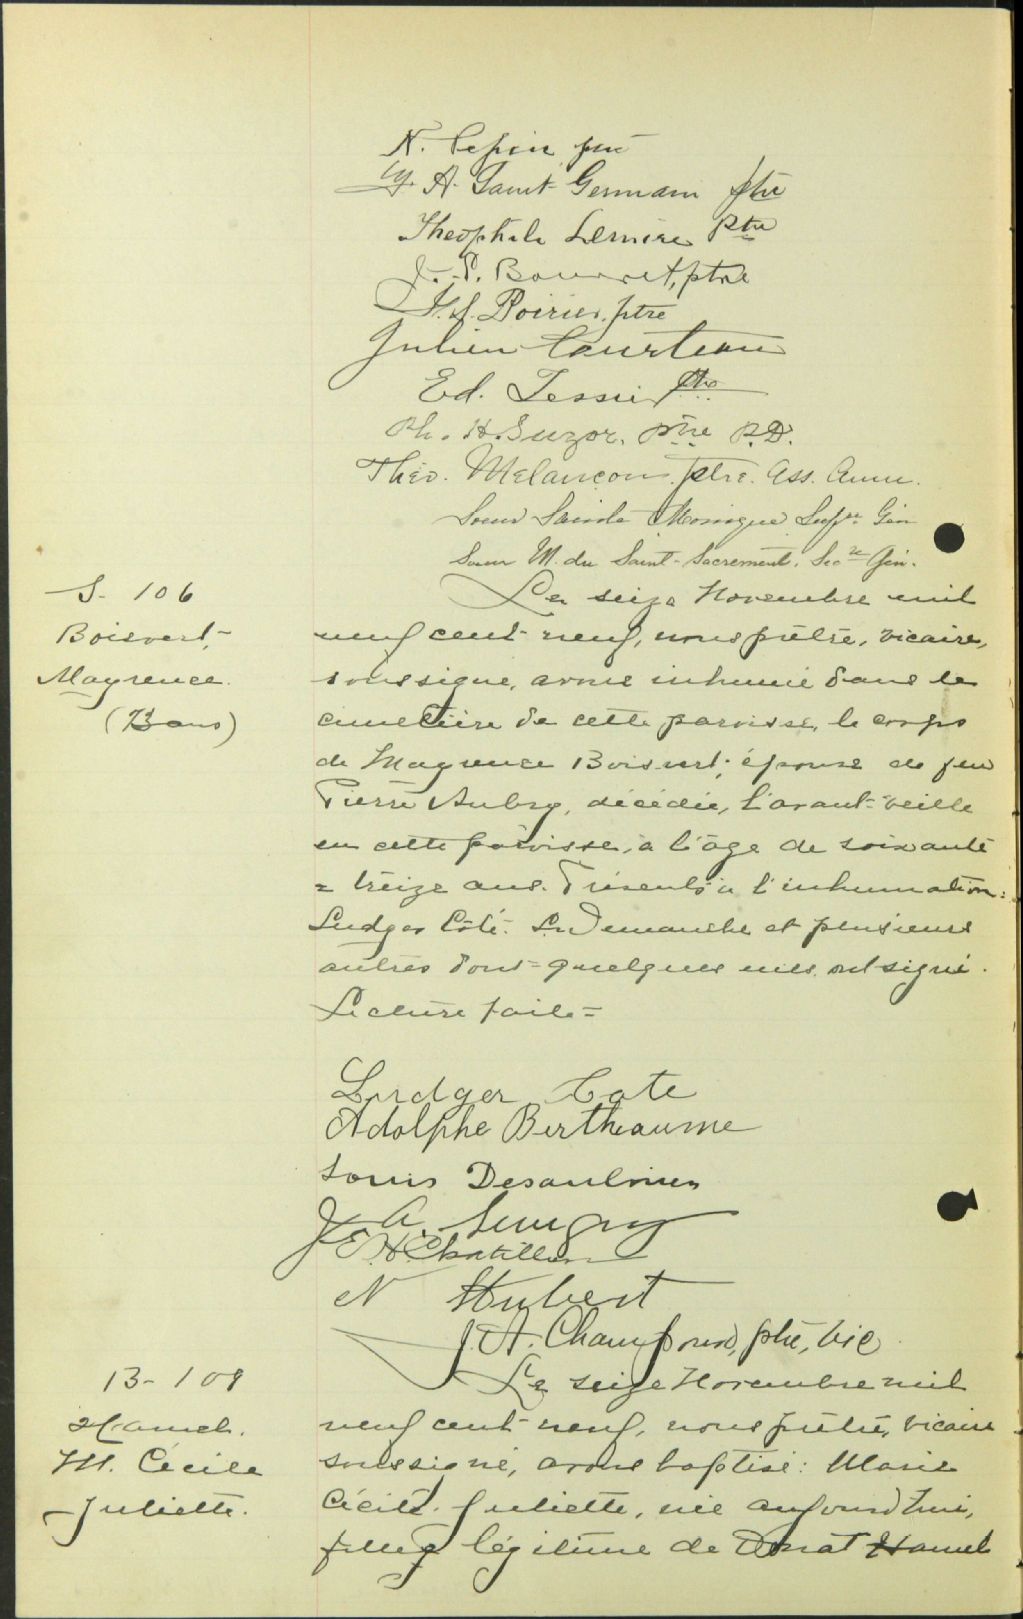 N. Pepin ptre
A. Saint-Germain ptre
Theophile Lemire Ptre
Bourret, ptre
Poirier, ptre
Julien Courteau
Ed. Tessier ptre
Ph. H. Suzor. ptre P.D.
Théo. Melançon ptre. Ass. Aum.
Soeur Sainte Monique Supre Gén
Soeur M. du Saint-Sacrement. Secre Gén.
S- 106
Boisvert-
Mayrence.
(73 ans)
Le seize Novembre mil
neuf cent neuf, nous prêtre, vicaire,
soussigné, avons inhumé dans le
cimetière de cette paroisse, le corps
de Mayrence Boisvert, épouse de feu
Pierre Aubry, décédée, l'avant-veille
en cette paroisse, à l'âge de soixante
= treize ans. Présents à l'inhumation:
Ludger Côté. Demanche et plusieurs
autres dont quelques uns ont signé.
Lecture faite =
Ludger Cote
Adolphe Bertheaume
Louis Desaulniers
J. A.
E. H. Chatillon
N Hubert
J. A. Champoux, ptre, vic
B- 109
Hamel.
M. Cécile
Juliette.
Le seize Novembre mil
neuf cent neuf, nous prêtre, vicaire
soussigné, avons baptisé: Marie
Cécile Juliette, née aujourd'hui,
fille légitime de Donat Hamel